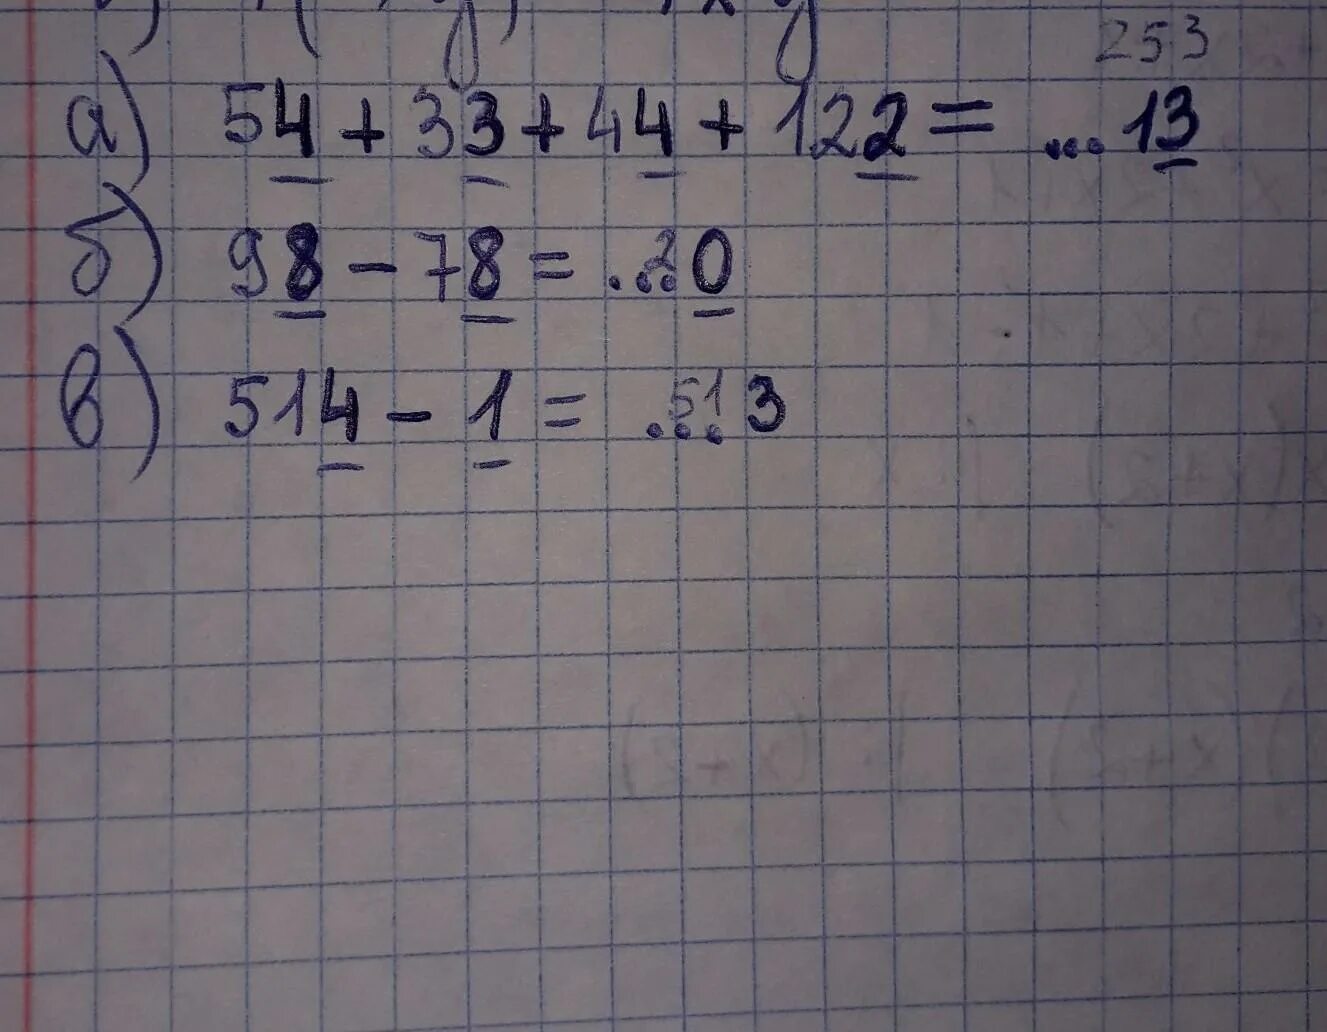 253
а) 54 + 33 + 44 + 122 = ... 13
б) 98 - 78 = ...20
в) 514 - 1 = ...513